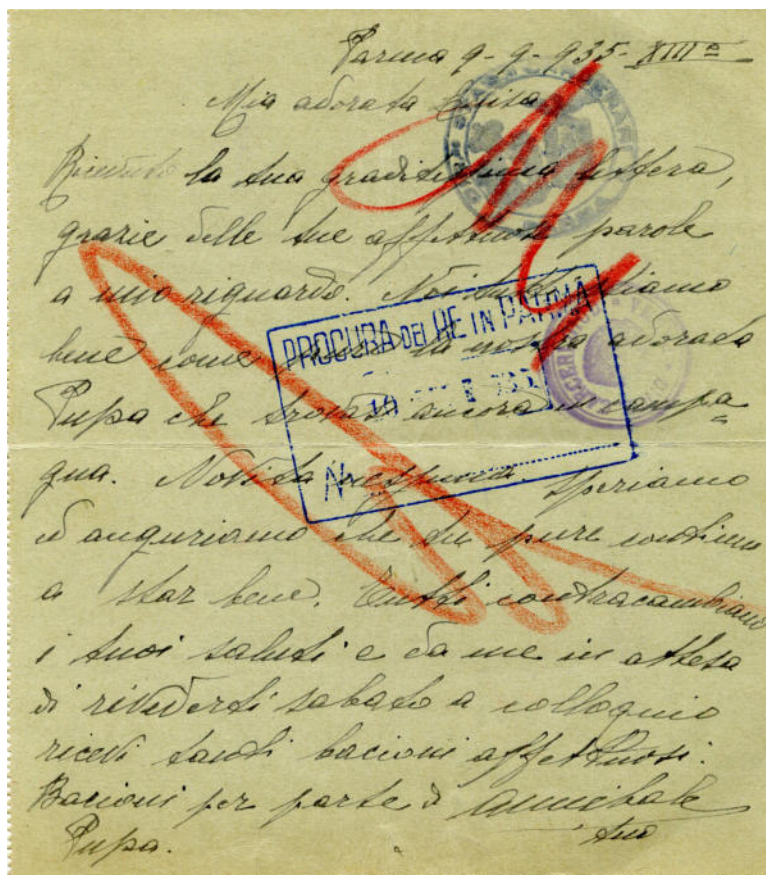 Parma 9-9-935-XIIIº
Mia adorata Luisa
Ricevuto la tua graditissima lettera,
grazie delle tue affettuose parole
a mio riguardo. Noi tutti stiamo
bene come pure la nostra adorata
Pupa che trovasi ancora in campa=
gna. Novità nessuna speriamo
ed auguriamo che tu pure continui
a star bene. Tutti contracambiano
i tuoi saluti e da me in attesa
di rivederti sabato a colloquio
ricevi tanti bacioni affettuosi.
Bacioni per parte di Annibale
Pupa. tuo
PROCURA DEL RE IN PARMA
10
N.